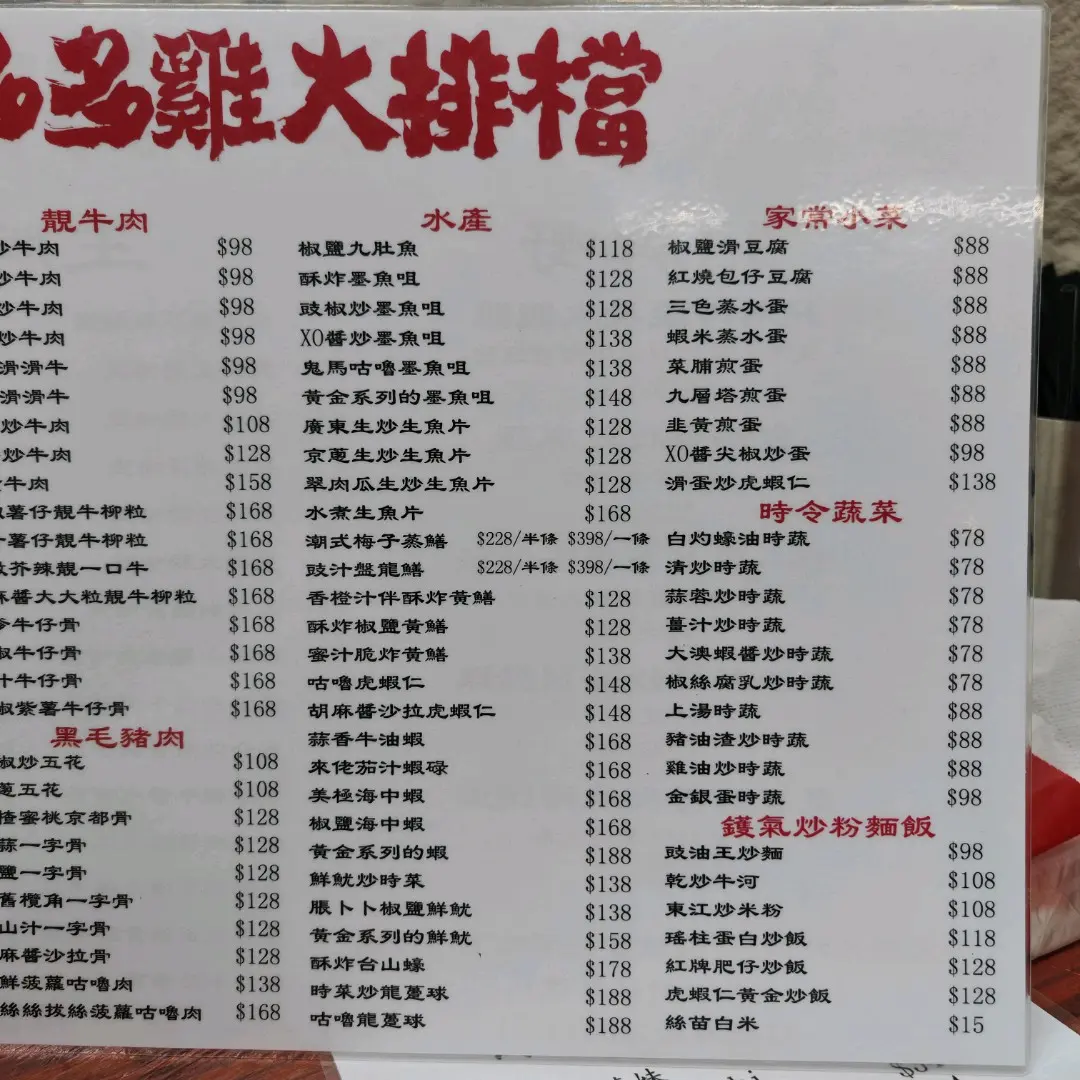 多雞大排檔
靚牛肉
炒牛肉 $98
炒牛肉 $98
炒牛肉 $98
炒牛肉 $98
滑滑牛 $98
滑滑牛 $98
炒牛肉 $108
炒牛肉 $128
牛肉 $158
薯仔靚牛柳粒 $168
薯仔靚牛柳粒 $168
芥辣靚一口牛 $168
麻醬大大粒靚牛柳粒 $168
牛仔骨 $168
椒牛仔骨 $168
汁牛仔骨 $168
椒紫薯牛仔骨 $168
黑毛豬肉
椒炒五花 $108
蔥五花 $108
楂蜜桃京都骨 $128
蒜一字骨 $128
鹽一字骨 $128
舊欖角一字骨 $128
山汁一字骨 $128
麻醬沙拉骨 $128
鮮菠蘿咕嚕肉 $138
絲絲拔絲菠蘿咕嚕肉 $168
水產
椒鹽九肚魚 $118
酥炸墨魚咀 $128
豉椒炒墨魚咀 $128
XO醬炒墨魚咀 $138
鬼馬咕嚕墨魚咀 $138
黃金系列的墨魚咀 $148
廣東生炒生魚片 $128
京蔥生炒生魚片 $128
翠肉瓜生炒生魚片 $128
水煮生魚片 $168
潮式梅子蒸鱔 $228/半條 $398/一條
豉汁盤龍鱔 $228/半條 $398/一條
香橙汁伴酥炸黃鱔 $128
酥炸椒鹽黃鱔 $128
蜜汁脆炸黃鱔 $138
咕嚕虎蝦仁 $148
胡麻醬沙拉虎蝦仁 $148
蒜香牛油蝦 $168
來佬茄汁蝦碌 $168
美極海中蝦 $168
椒鹽海中蝦 $168
黃金系列的蝦 $188
鮮魷炒時菜 $138
脹卜卜椒鹽鮮魷 $138
黃金系列的鮮魷 $158
酥炸台山蠔 $178
時菜炒龍躉球 $188
咕嚕龍躉球 $188
家常小菜
椒鹽滑豆腐 $88
紅燒包仔豆腐 $88
三色蒸水蛋 $88
蝦米蒸水蛋 $88
菜脯煎蛋 $88
九層塔煎蛋 $88
韭黃煎蛋 $88
XO醬尖椒炒蛋 $98
滑蛋炒虎蝦仁 $138
時令蔬菜
白灼蠔油時蔬 $78
清炒時蔬 $78
蒜蓉炒時蔬 $78
薑汁炒時蔬 $78
大澳蝦醬炒時蔬 $78
椒絲腐乳炒時蔬 $78
上湯時蔬 $88
豬油渣炒時蔬 $88
雞油炒時蔬 $88
金銀蛋時蔬 $98
鑊氣炒粉麵飯
豉油王炒麵 $98
乾炒牛河 $108
東江炒米粉 $108
瑤柱蛋白炒飯 $118
紅牌肥仔炒飯 $128
虎蝦仁黃金炒飯 $128
絲苗白米 $15